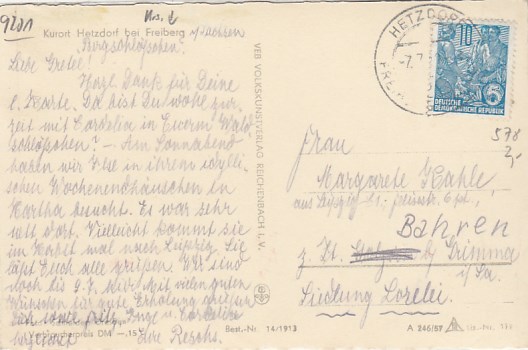 9201
Kurort Hetzdorf bei Freiberg i/Sachsen
"Bergschlößchen."
Liebe Gretel!
Herzl. Dank für Deine
l. Karte. Da bist Du wohl zur
zeit mit Cordelia in Eurem Wald
schlößchen? – Am Sonnabend
haben wir Ilse in ihrem idylli-
schen Wochenendhäuschen in
Hartha besucht. Es war sehr
nett dort. Vielleicht kommt sie
im Herbst mal nach Leipzig. Sie
läßt Euch alle grüßen. Wir sind
noch bis 9.7. hier. Mit vielen guten
Wünschen für gute Erholung grüßen
Dich sowie Fritz, Inge u. Cordelia
Eure
Verbraucherpreis DM –.15
Best.-Nr. 14/1913
A 246/57
VEB VOLKSKUNSTVERLAG REICHENBACH i. V.
HETZDORF
-7.7
DEUTSCHE
DEMOKRATISCHE REPUBLIK
6
578
Frau
Margarete Hahle,
aus Leipzig
Bahren
z. Zt. b/ Grimma
i/Sa.
Siedlung Lorelei.